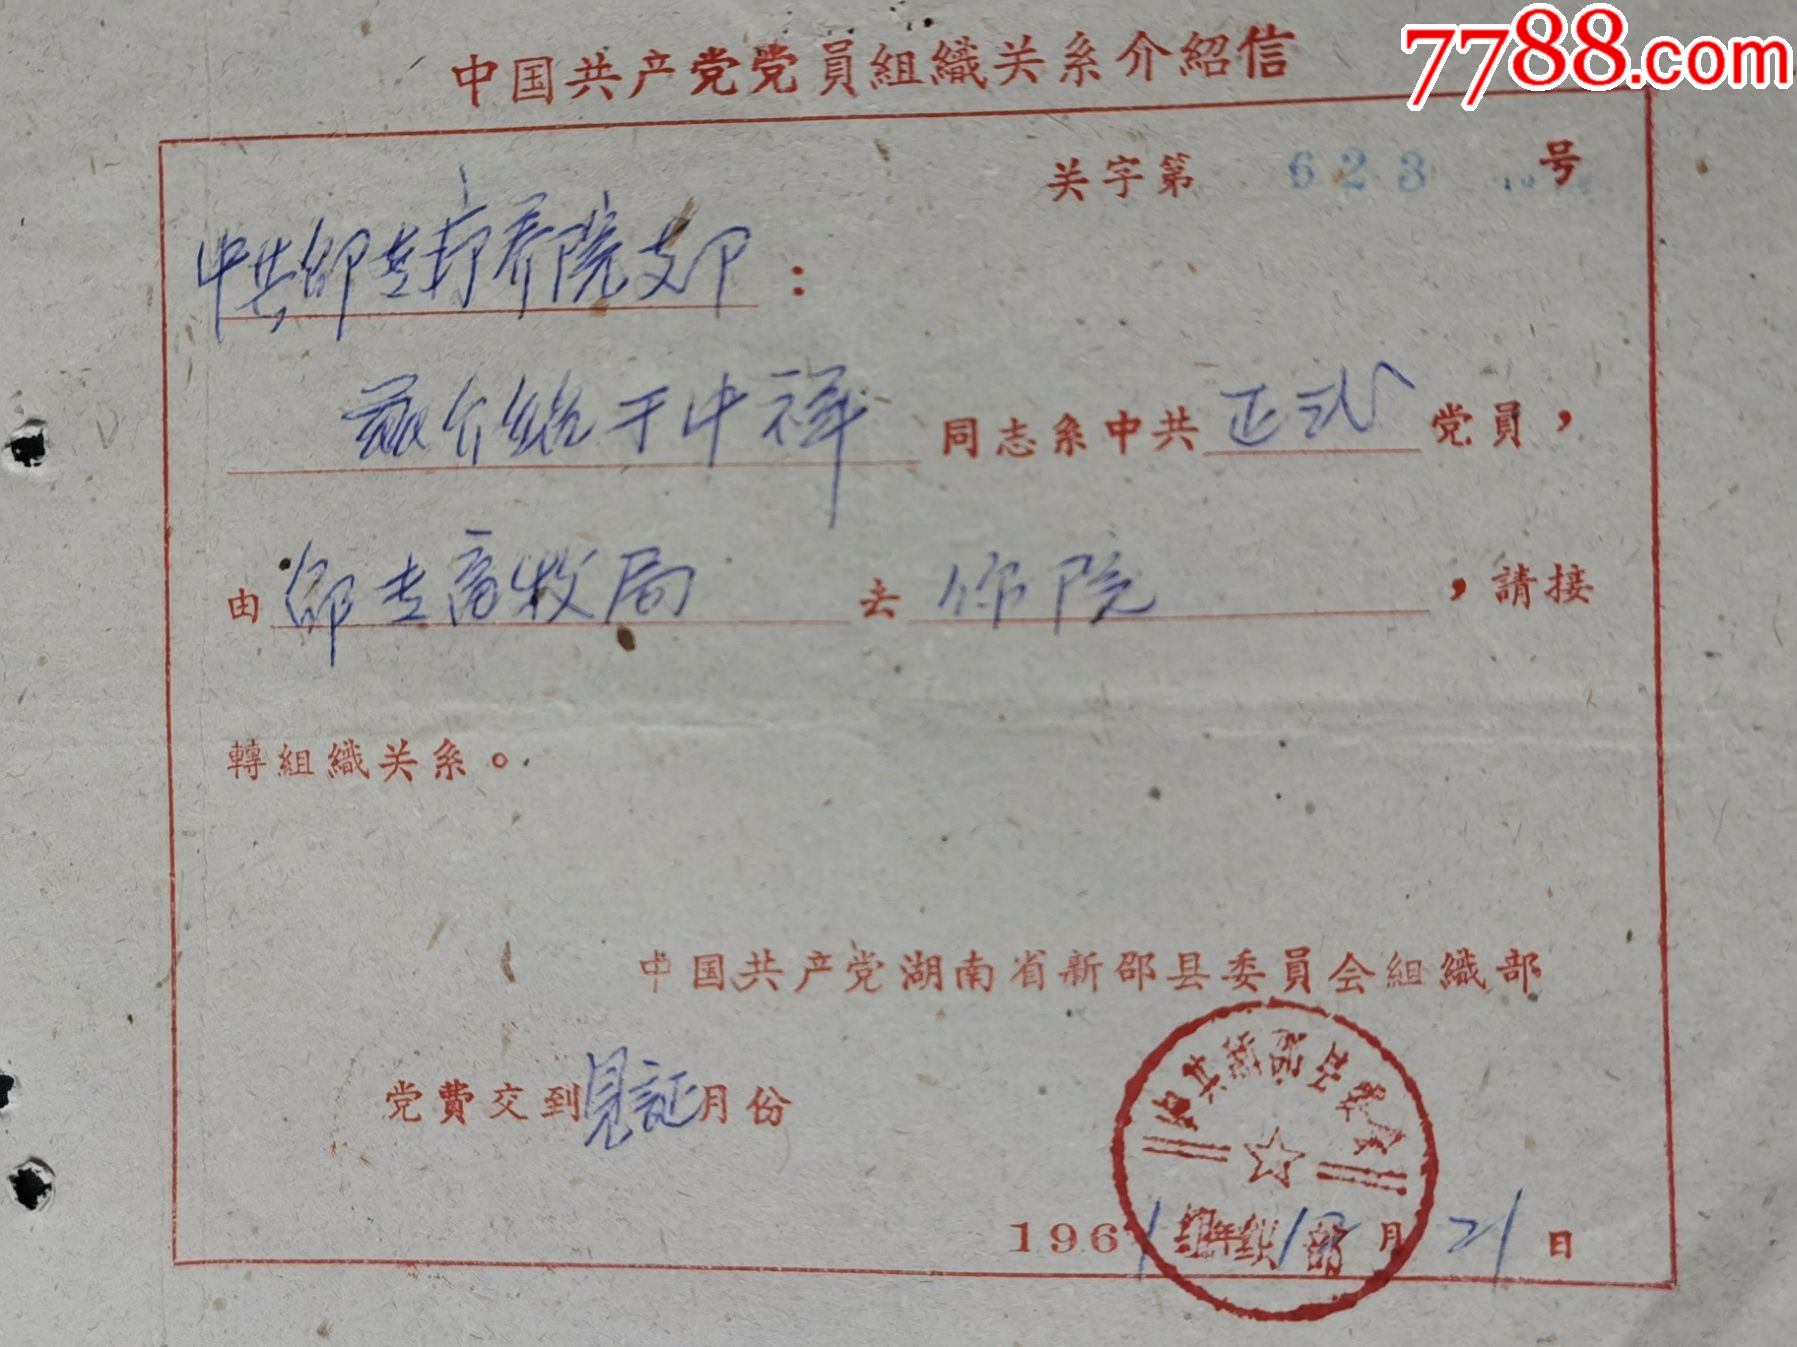 7788.com
中国共产党党員組織关系介紹信
关字第 623 号
中共邵专疗养院支部：
兹介绍于中祥同志系中共正式党員，
由邵专畜牧局去你院，請接
轉組織关系。
中国共产党湖南省新邵县委員会組織部
党費交到見証月份
1961年12月21日
中共新邵县委員会
組織部